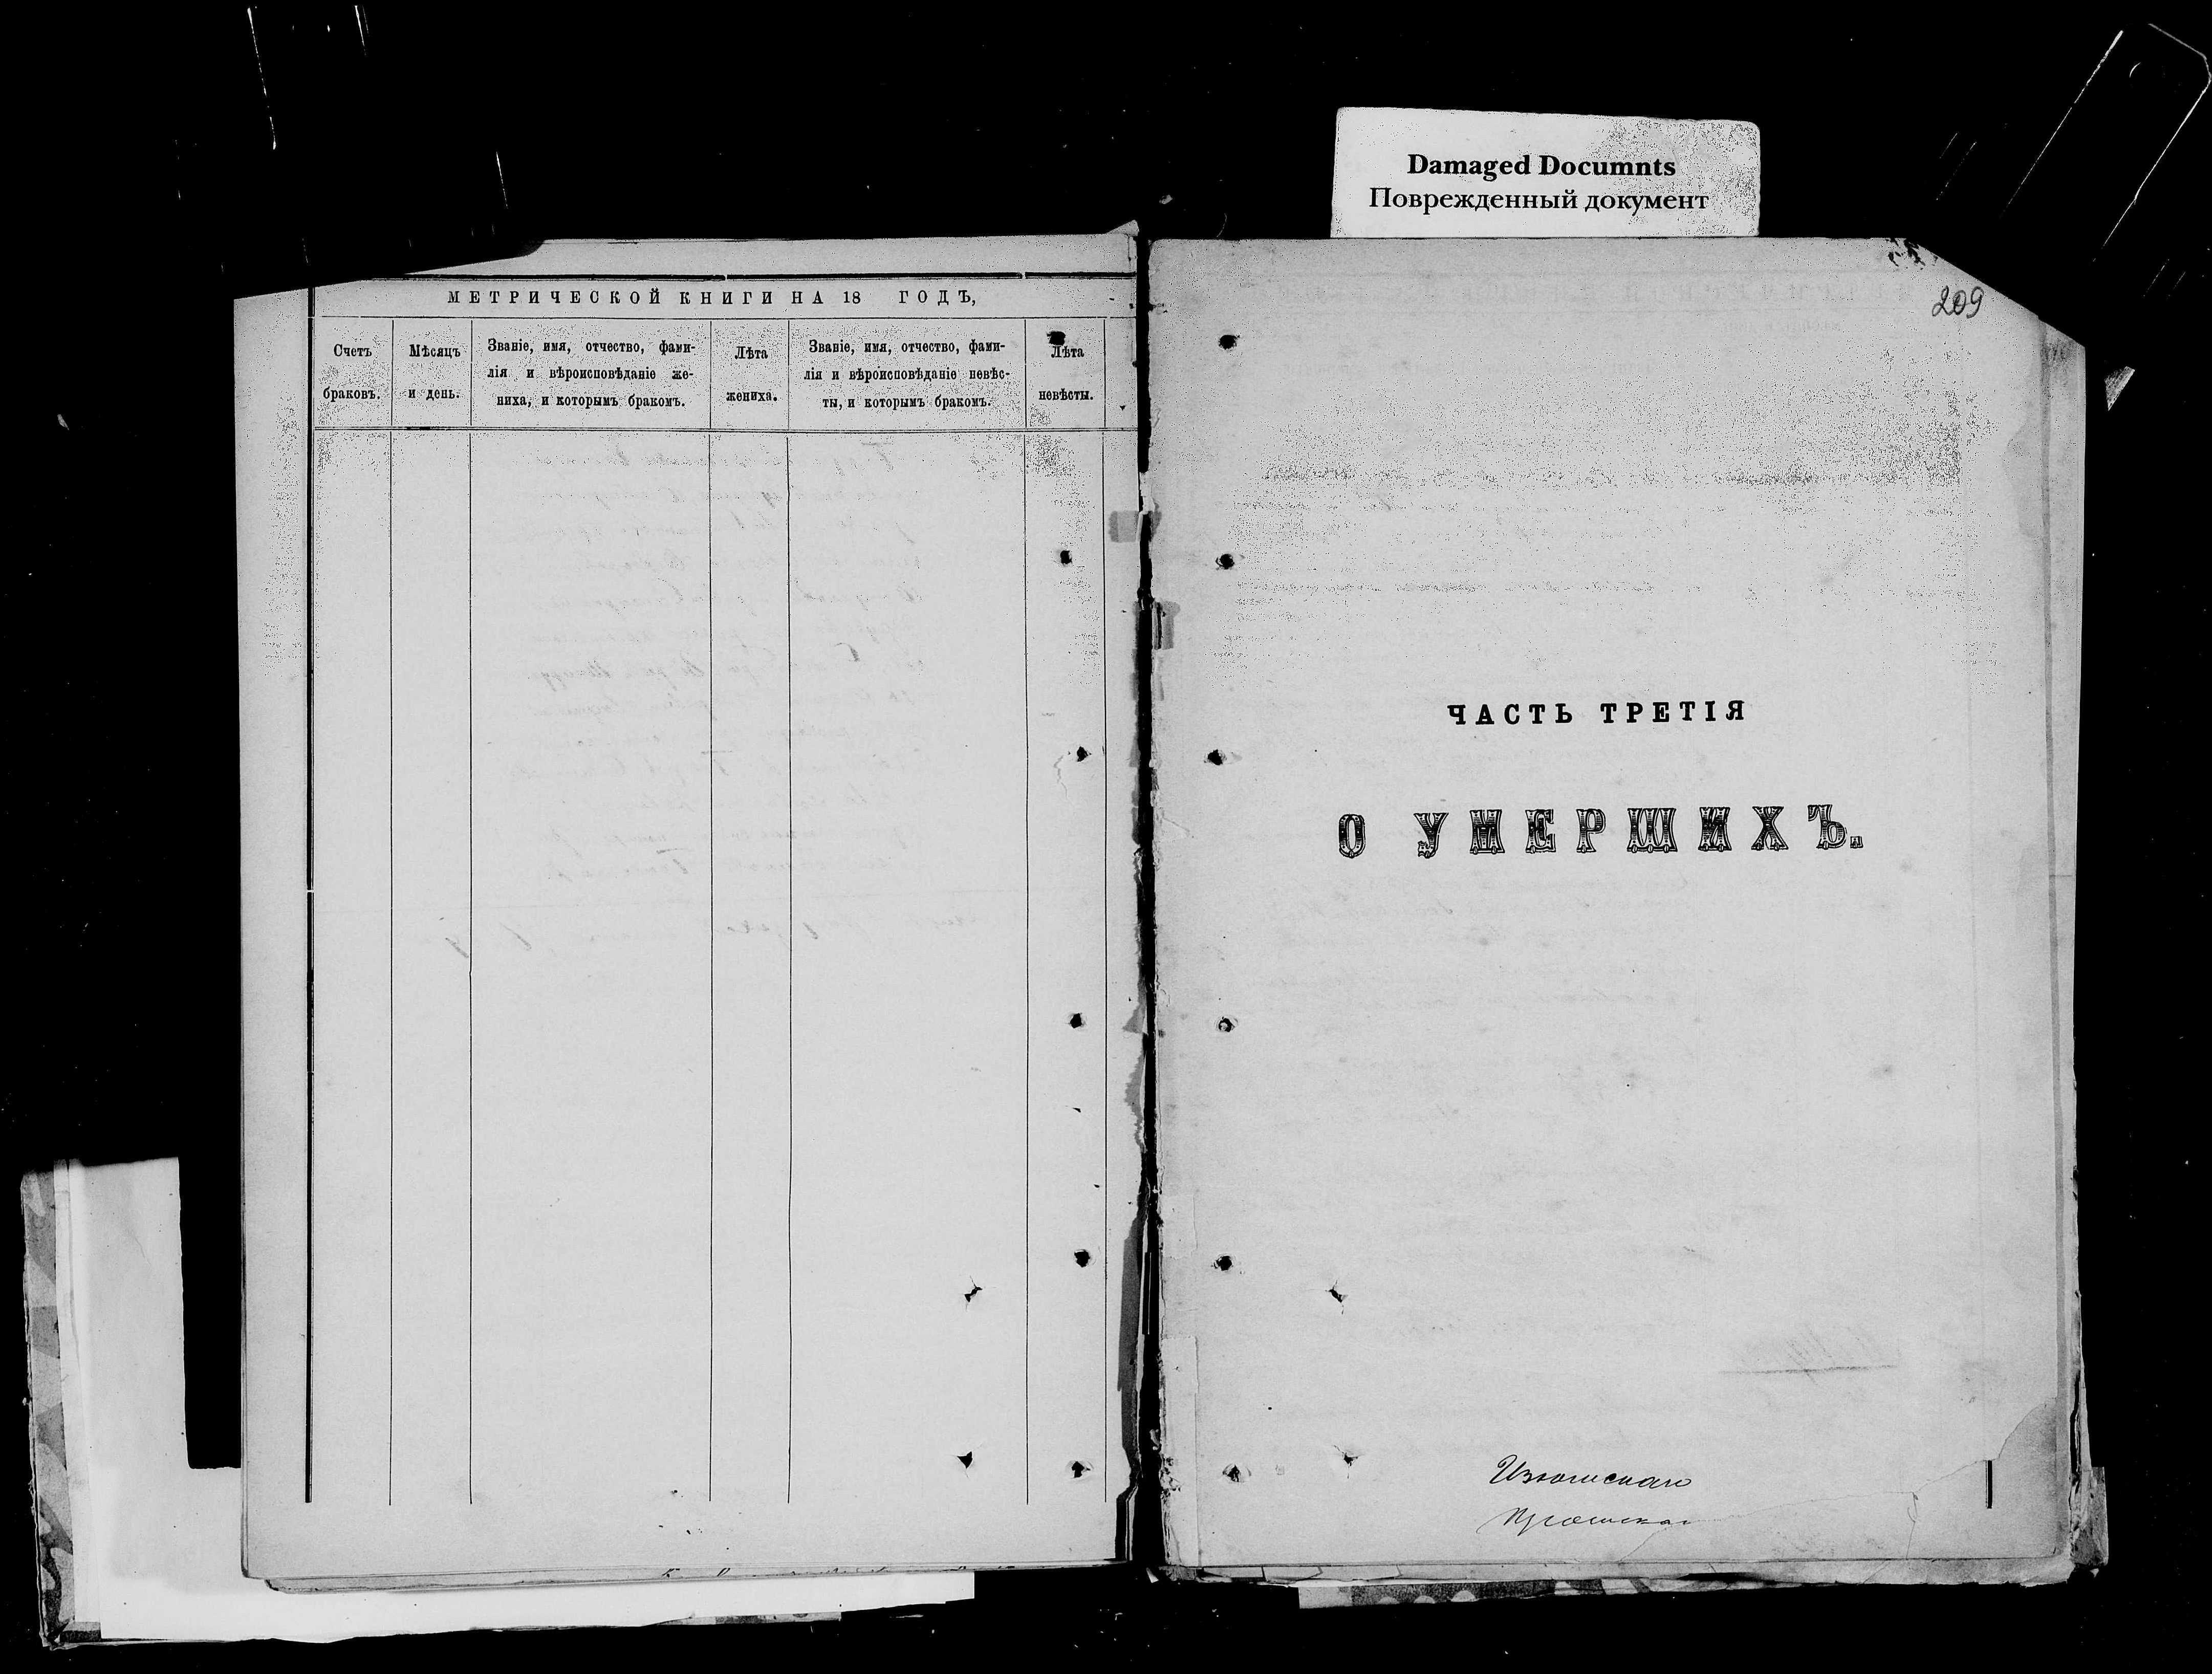 Damaged Documnts
Поврежденный документ
МЕТРИЧЕСКОЙ КНИГИ НА 18 ГОДЪ,
Счетъ браковъ.
Мѣсяцъ и день.
Званіе, имя, отчество, фами-
лія и вѣроисповѣданіе же-
ниха, и которымъ бракомъ.
Лѣта жениха.
Званіе, имя, отчество, фами-
лія и вѣроисповѣданіе невѣс-
ты, и которымъ бракомъ.
Лѣта невѣсты.
209
ЧАСТЬ ТРЕТІЯ
О УМЕРШИХЪ.